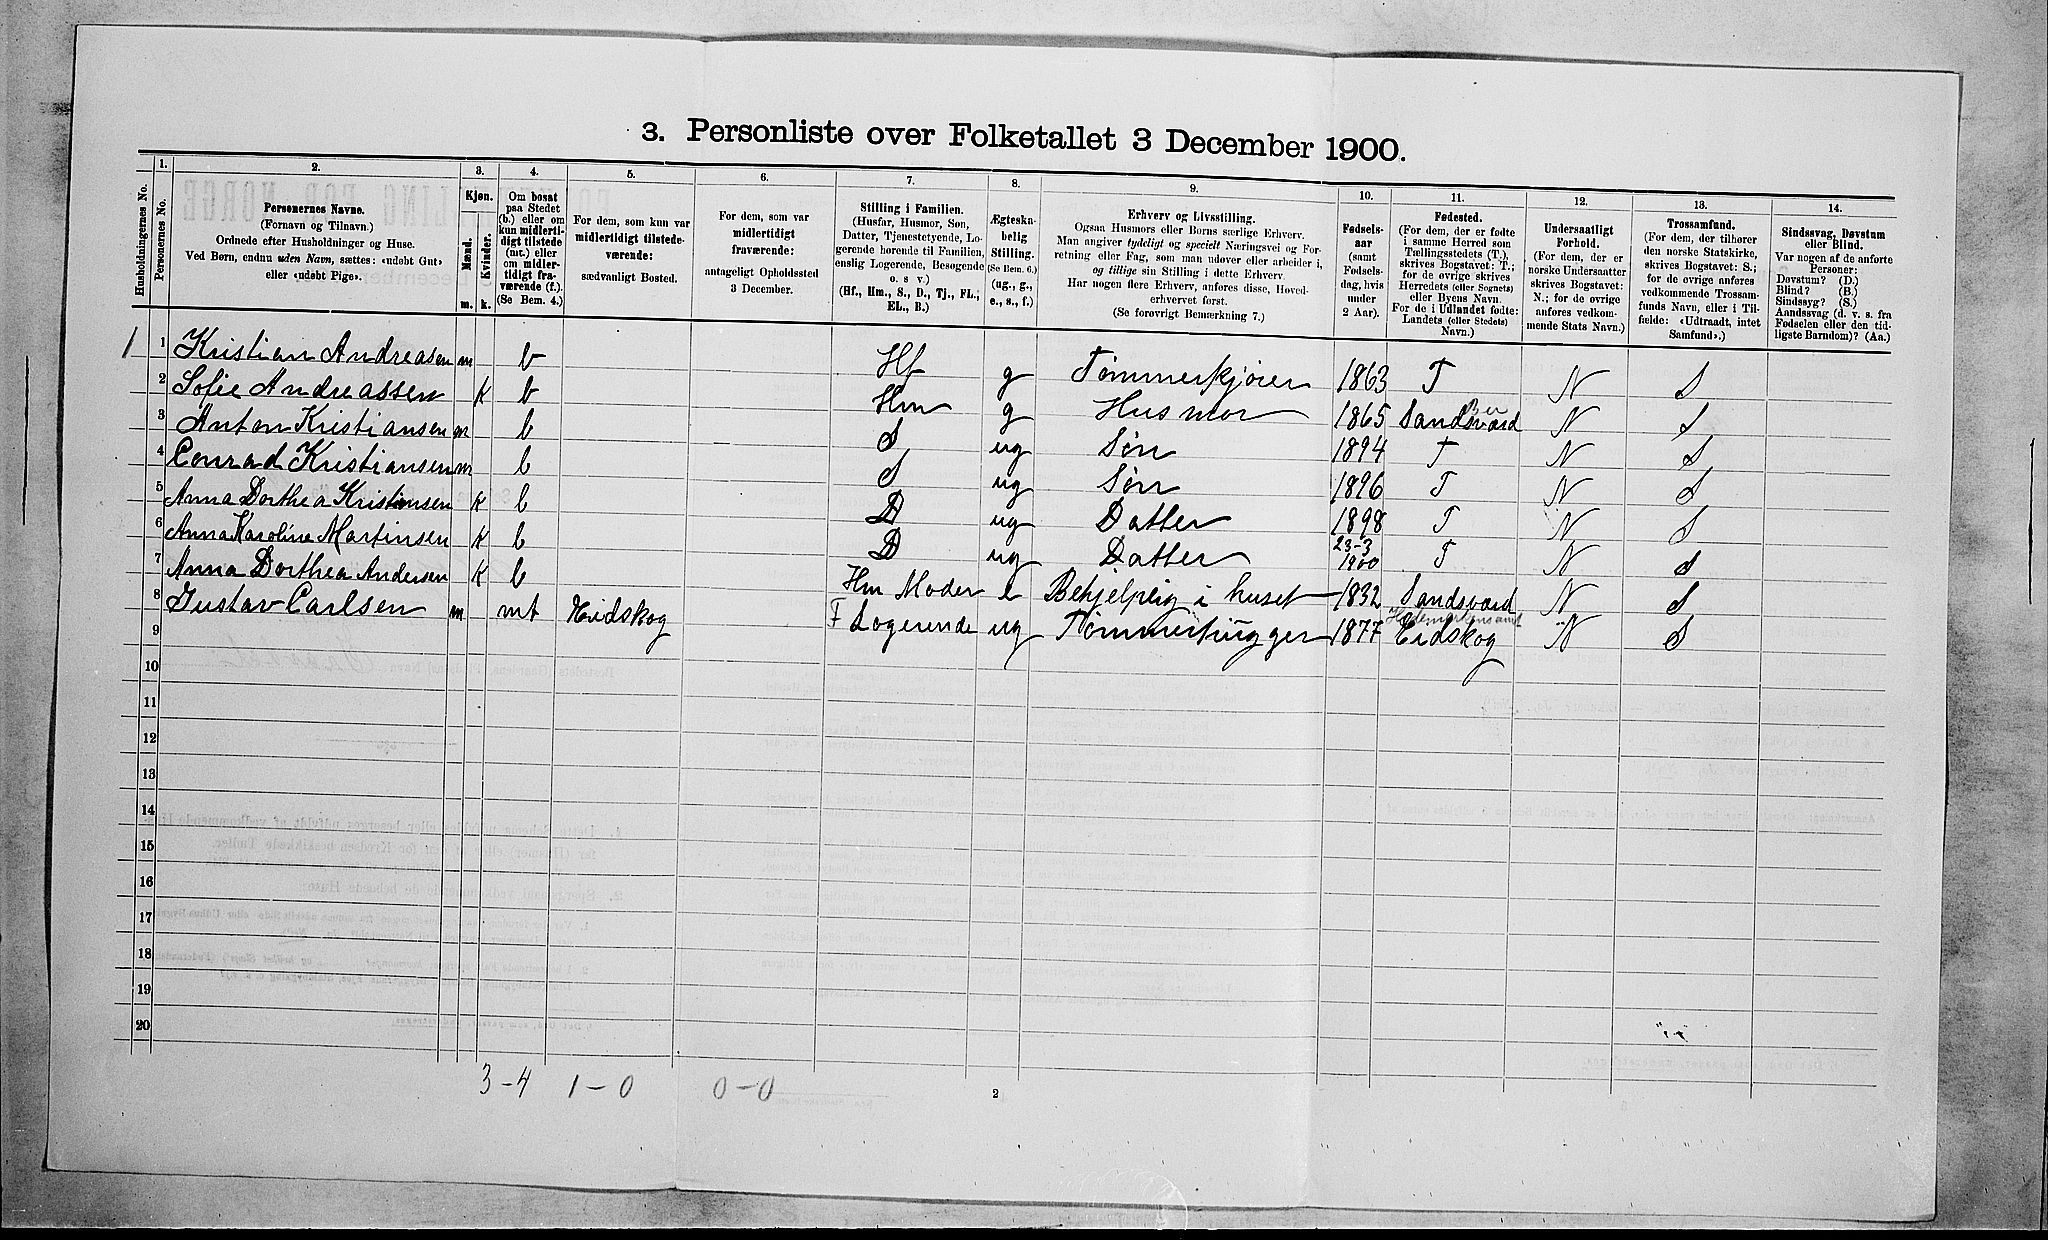 3. Personliste over Folketallet 3 December 1900.
Husholdningernes No.
1.
Personernes No.
2.
Personernes Navne.
(Fornavn og Tilnavn.)
Ordnede efter Husholdninger og Huse.
Ved Børn, endnu uden Navn, sættes: «udøbt Gut»
eller «udøbt Pige».
3.
Kjøn.
Mænd.
Kvinder.
m. k.
4.
Om bosat
paa Stedet
(b.) eller om
kun midlerti-
digt tilstede
(mt.) eller
om midler-
tidigt fra-
værende (f.).
(Se Bem. 4.)
5.
For dem, som kun var
midlertidigt tilstede-
værende:
sædvanligt Bosted.
6.
For dem, som var
midlertidigt
fraværende:
antageligt Opholdssted
3 December.
7.
Stilling i Familien.
(Husfar, Husmor, Søn,
Datter, Tjenestetyende, Lo-
gerende hørende til Familien,
enslig Logerende, Besøgende
o. s. v.)
(Hf., Hm., S., D., Tj., FL.,
EL., B.)
8.
Ægteska-
belig
Stilling.
(Se Bem. 6.)
(ug., g.,
e., s., f.)
9.
Erhverv og Livsstilling.
Ogsaa Husmors eller Børns særlige Erhverv.
Man angiver tydeligt og specielt Næringsvei og For-
retning eller Fag, som man udøver eller arbeider i,
og tillige sin Stilling i dette Erhverv.
Har nogen flere Erhverv, anføres disse, Hoved-
erhvervet først.
(Se forøvrigt Bemærkning 7.)
10.
Fødsels-
aar
(samt
Fødsels-
dag, hvis
under
2 Aar).
11.
Fødested.
(For dem, der er fødte
i samme Herred som
Tællingsstedets (T.),
skrives Bogstavet: T.;
for de øvrige skrives
Herredets (eller Sognets)
eller Byens Navn.
For de i Udlandet fødte:
Landets (eller Stedets)
Navn.)
12.
Undersaatligt
Forhold.
(For dem, der er
norske Undersaatter
skrives Bogstavet:
N.; for de øvrige
anføres vedkom-
mende Stats Navn.)
13.
Trossamfund.
(For dem, der tilhører
den norske Statskirke,
skrives Bogstavet: S.;
for de øvrige anføres
vedkommende Trossam-
funds Navn, eller i Til-
fælde: «Udtraadt, intet
Samfund».)
14.
Sindssvag, Døvstum
eller Blind.
Var nogen af de anførte
Personer:
Døvstum? (D.)
Blind? (B.)
Sindssyg? (S.)
Aandssvag (d. v. s. fra
Fødselen eller den tid-
ligste Barndom)? (Aa.)
1 1 Kristian Andreasen m b Hf g Tømmerkjører 1863 T N S
2 Sofie Andreassen k b Hm g Husmor 1865 Sandsværd N S
3 Anton Kristiansen m b S ug Søn 1894 T N S
4 Conrad Kristiansen m b S ug Søn 1896 T N S
5 Anna Dorthea Kristiansen k b D ug Datter 1898 T N S
6 Anna Karoline Martinsen k b D ug Datter 23-3 1900 T N S
7 Anna Dorthea Andersen k b Hm Moder e Behjelpelig i huset 1832 Sandsværd N S
8 Gustav Carlsen m mt Eidskog F Logerende ug Tømmerhugger 1877 Eidskog N S
Hedemarkens amt
9
10
11
12
13
14
15
16
17
18
19
20
3-4 1-0 0-0
2